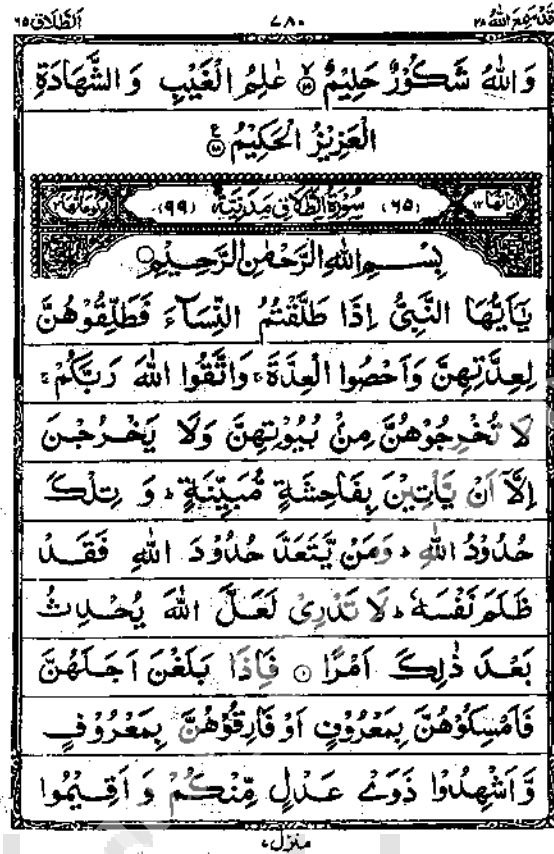 قَدْ سَمِعَ اللّٰهُ ۲۸ ۷۸۰ اَلطَّلَاق ۶۵
وَاللّٰهُ شَكُوْرٌ حَلِيْمٌ ۙ﴿۱۷﴾ عٰلِمُ الْغَيْبِ وَ الشَّهَادَةِ
الْعَزِيْزُ الْحَكِيْمُ ﴿۱۸﴾ ع
اٰيَاتُهَا ۱۲ (۶۵) سُوْرَةُ الطَّلَاقِ مَدَنِيَّةٌ (۹۹) رُكُوْعَاتُهَا ۲
بِسْمِ اللّٰهِ الرَّحْمٰنِ الرَّحِيْمِ
يٰۤاَيُّهَا النَّبِيُّ اِذَا طَلَّقْتُمُ النِّسَآءَ فَطَلِّقُوْهُنَّ
لِعِدَّتِهِنَّ وَاَحْصُوا الْعِدَّةَ ۚ وَاتَّقُوا اللّٰهَ رَبَّكُمْ ۚ
لَا تُخْرِجُوْهُنَّ مِنْۢ بُيُوْتِهِنَّ وَلَا يَخْرُجْنَ
اِلَّاۤ اَنْ يَّاْتِيْنَ بِفَاحِشَةٍ مُّبَيِّنَةٍ ؕ وَ تِلْكَ
حُدُوْدُ اللّٰهِ ؕ وَمَنْ يَّتَعَدَّ حُدُوْدَ اللّٰهِ فَقَدْ
ظَلَمَ نَفْسَهٗ ؕ لَا تَدْرِىْ لَعَلَّ اللّٰهَ يُحْدِثُ
بَعْدَ ذٰلِكَ اَمْرًا ﴿۱﴾ فَاِذَا بَلَغْنَ اَجَلَهُنَّ
فَاَمْسِكُوْهُنَّ بِمَعْرُوْفٍ اَوْ فَارِقُوْهُنَّ بِمَعْرُوْفٍ
وَّ اَشْهِدُوْا ذَوَىْ عَدْلٍ مِّنْكُمْ وَ اَقِيْمُوا
منزل ۷